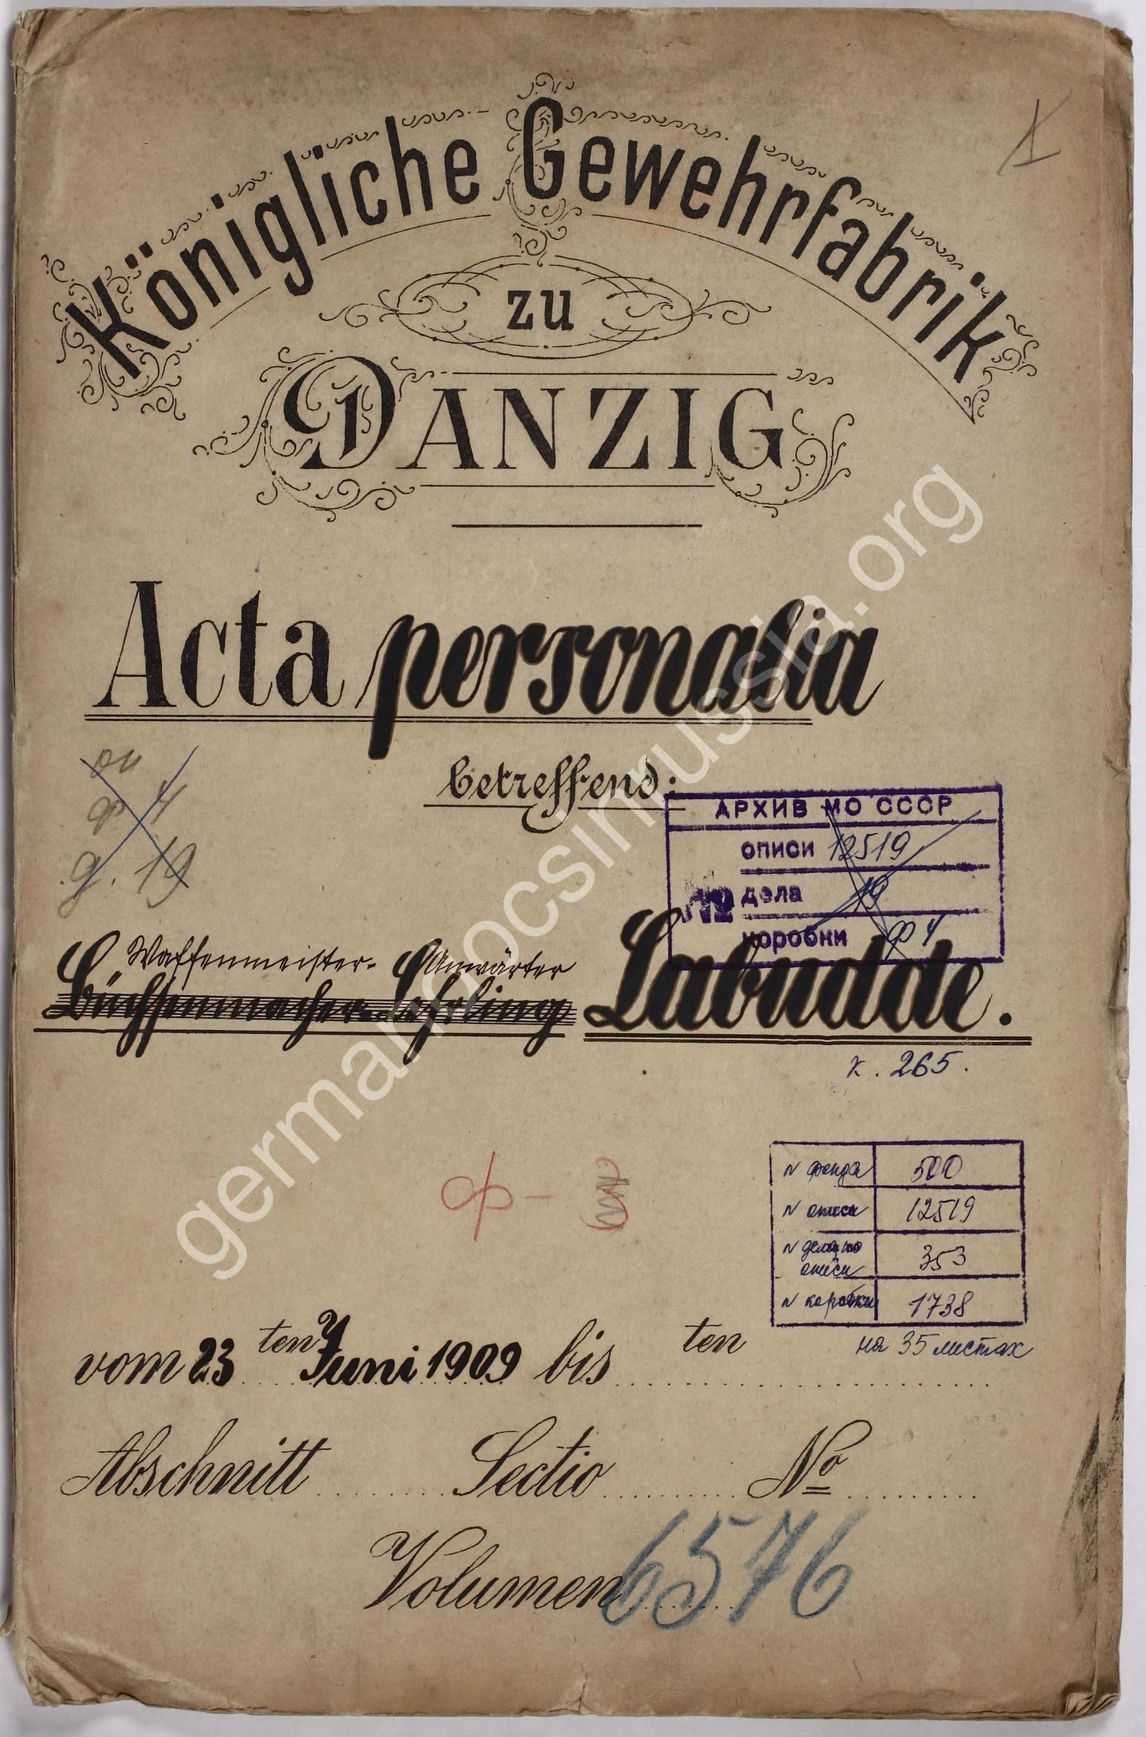 Königliche Gewehrfabrik
zu
DANZIG
Acta personalia
betreffend:
он
ф 4
д. 19
АРХИВ МО СССР
описи 12519
№ дела 19
коробки ф 4
Waffenmeister-Anwärter
Büchsenmacher-Lehrling Labudde.
к. 265.
ф -
N фонда 500
N описи 12519
N дела по описи 353
N коробки 1738
на 35 листах
vom 23ten Juni 1909 bis ten
Abschnitt Sectio No
Volumen 6576
germandocsinrussia.org